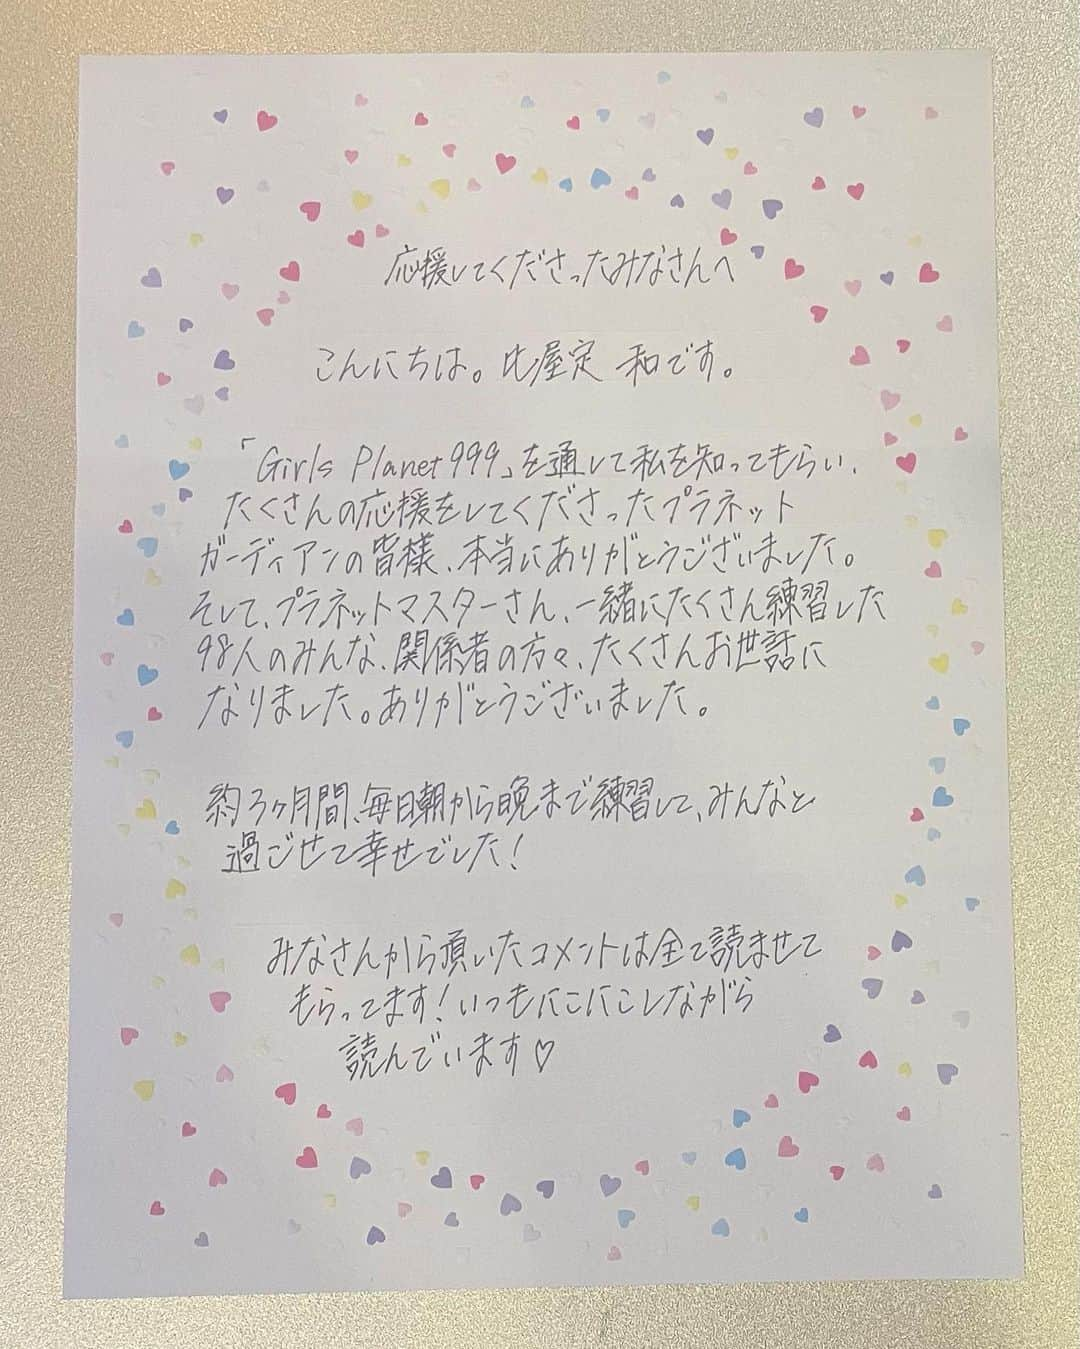 応援してくださったみなさんへ
こんにちは。比屋定 和です。
「Girls Planet 999」を通して私を知ってもらい、
たくさんの応援をしてくださったプラネット
ガーディアンの皆様、本当にありがとうございました。
そして、プラネットマスターさん、一緒にたくさん練習した
98人のみんな、関係者の方々、たくさんお世話に
なりました。ありがとうございました。
約3ヶ月間、毎日朝から晩まで練習して、みんなと
過ごせて幸せでした！
みなさんから頂いたコメントは全て読ませて
もらってます！いつもにこにこしながら
読んでいます♡